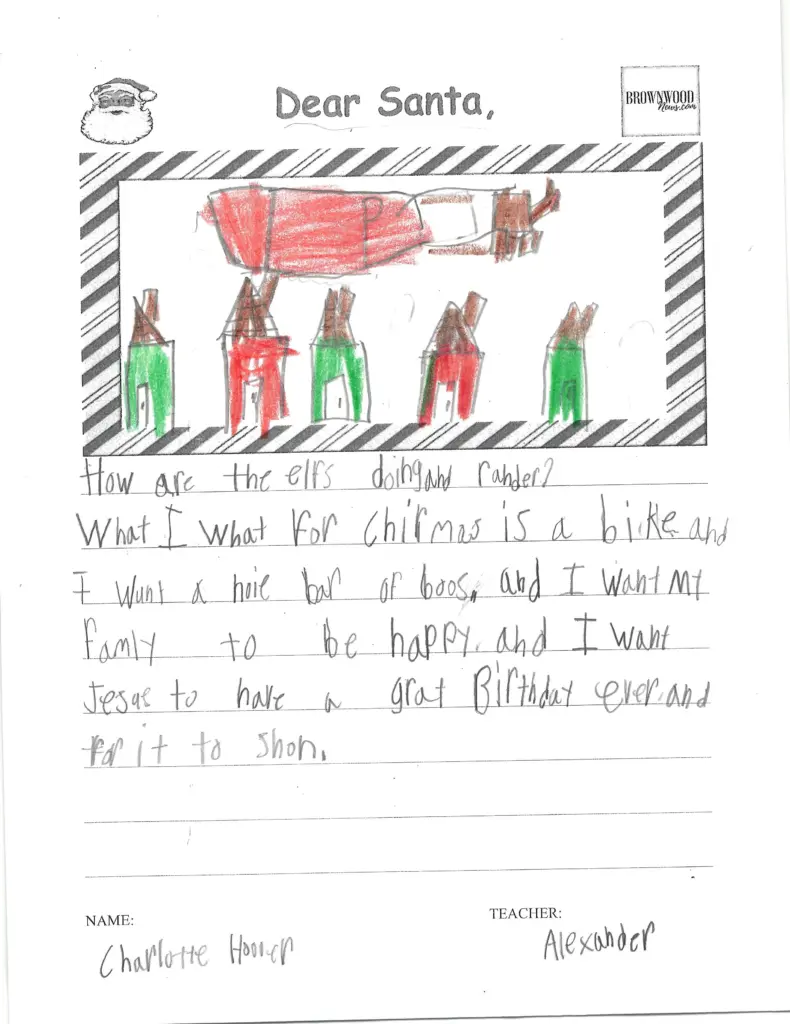 Dear Santa,
BROWNWOOD
News.com
How are the elfs doing and rander?
What I what for Chirmas is a bike and
I wunt a hole bar of boos, and I want my
famly to be happy. and I want
Jesue to have a grat Birthday ever. and
for it to shon.
NAME:
TEACHER:
Charlotte
Alexander